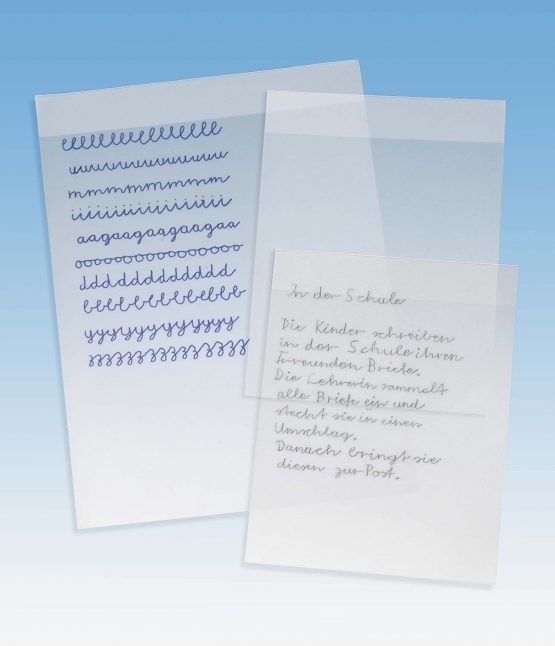 eeeeeeeeeeeeeee
uuuuuuuuuuuu
mmmmmmmmm
iiiiiiiiiiiiiiiii
aagaagaagaagaa
ooooooooooooooo
ddddddddddddd
yyyyyyyyyyyy
In der Schule
Die Kinder schreiben
in der Schule ihren
Freunden Briefe.
Die Lehrerin sammelt
alle Briefe ein und
steckt sie in einen
Umschlag.
Danach bringt sie
diesen zur Post.